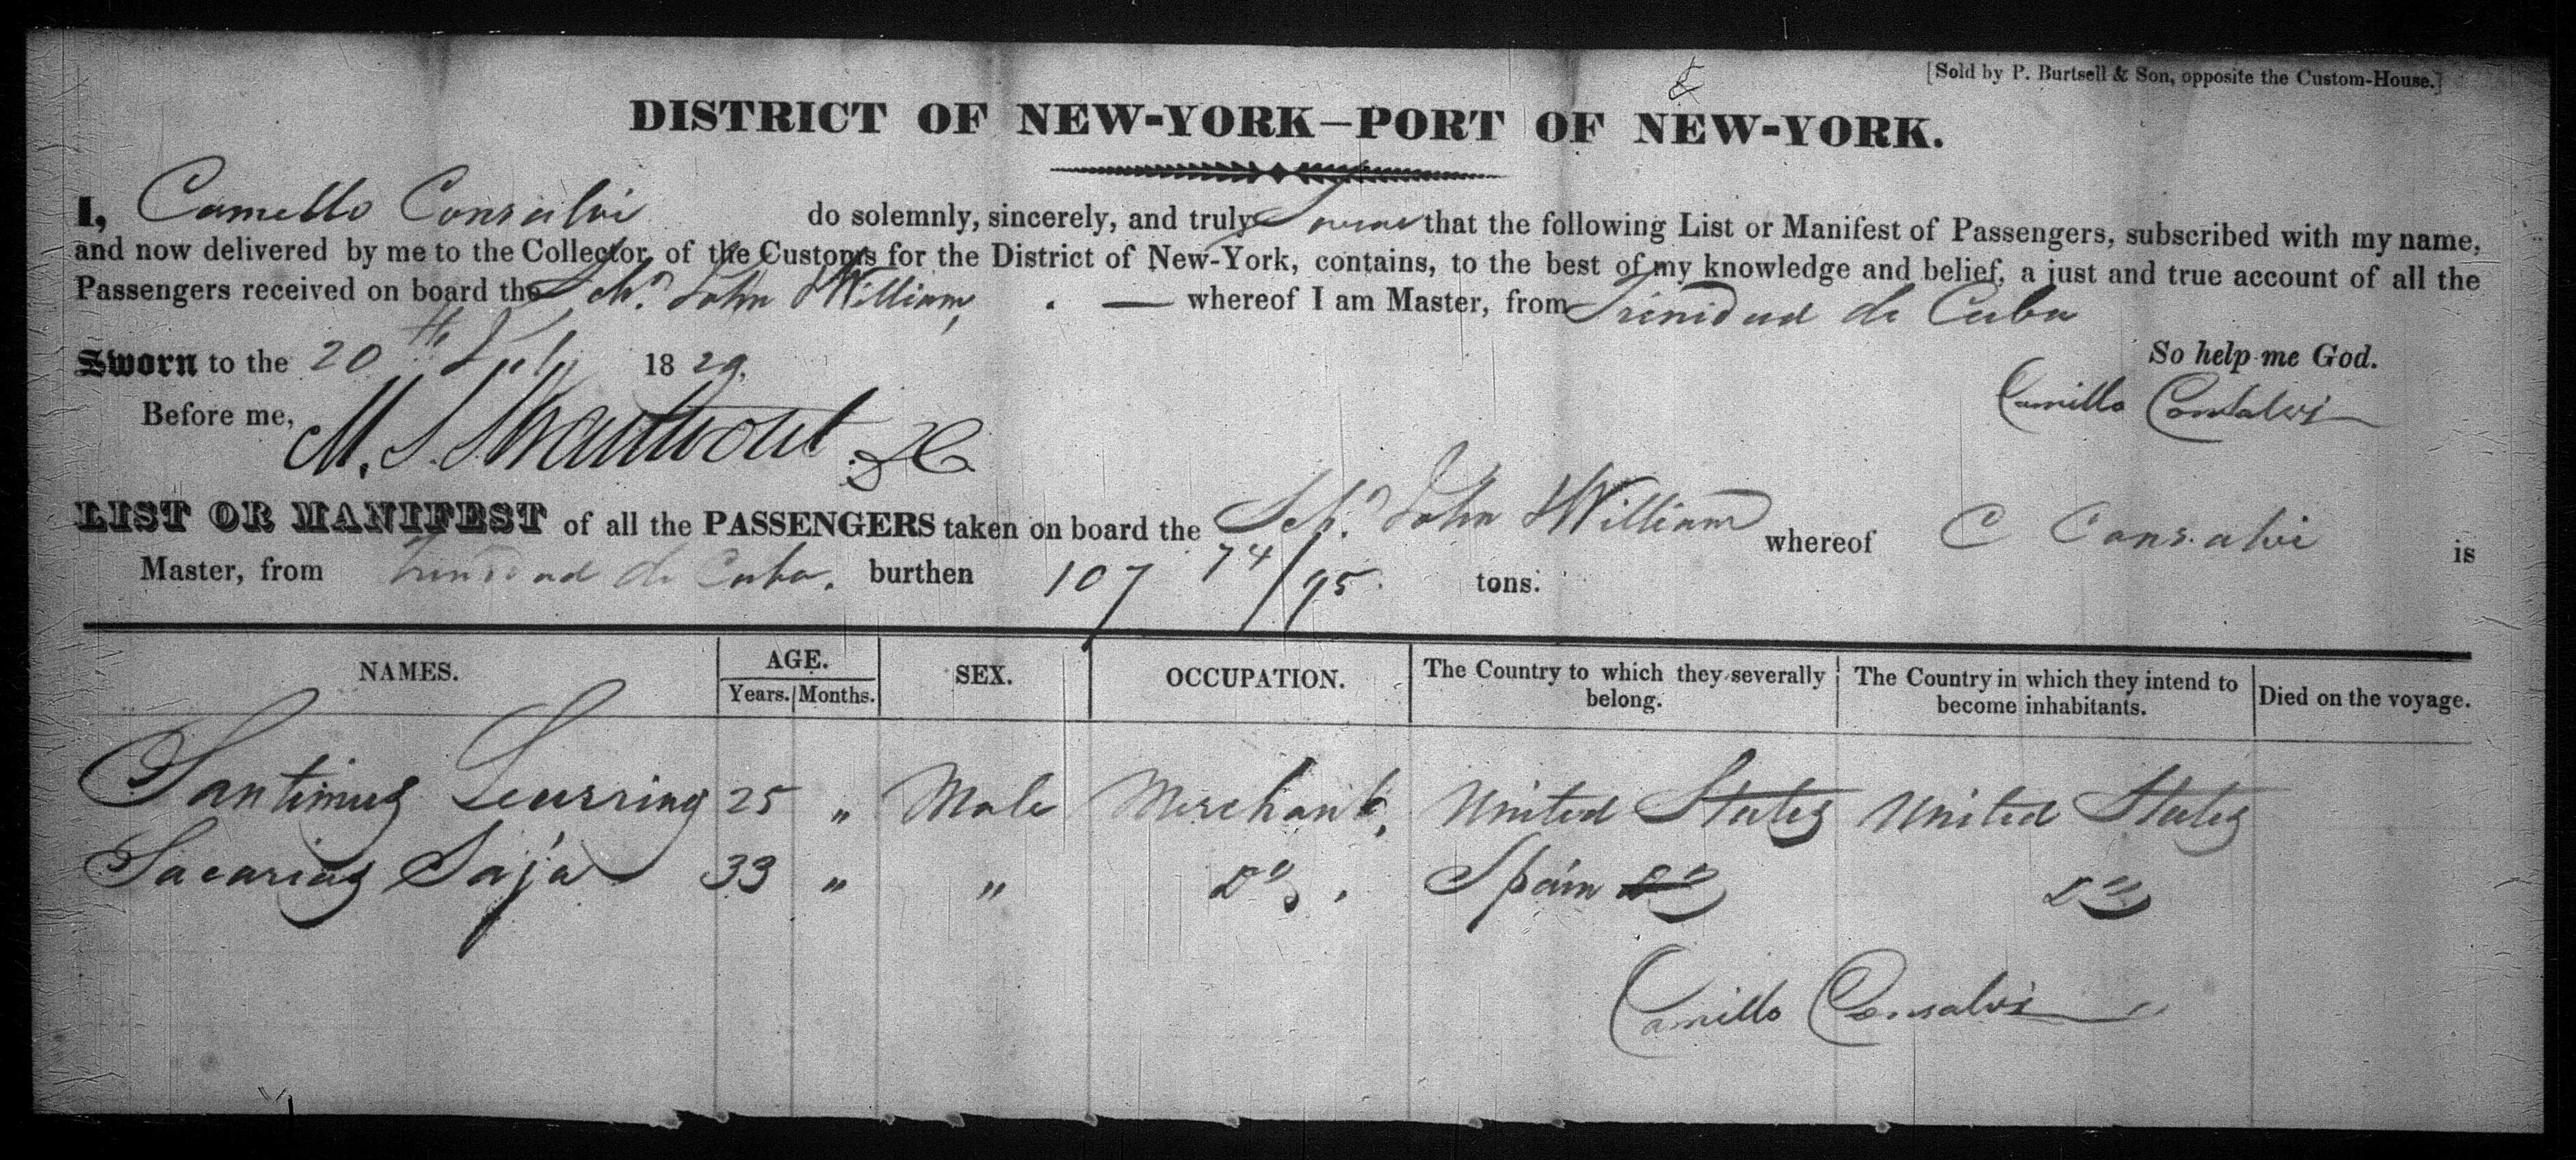 [Sold by P. Burtsell & Son, opposite the Custom-House.]
DISTRICT OF NEW-YORK—PORT OF NEW-YORK.
I, Camello Consalvi do solemnly, sincerely, and truly Swear that the following List or Manifest of Passengers, subscribed with my name,
and now delivered by me to the Collector of the Customs for the District of New-York, contains, to the best of my knowledge and belief, a just and true account of all the
Passengers received on board the Schr John William, — whereof I am Master, from Trinidad de Cuba
So help me God.
Sworn to the 20th July 1829.
Camillo Consalvi
Before me, M. S. Swartwout DC
LIST OR MANIFEST of all the PASSENGERS taken on board the Schr John William whereof C Consalvi is
Master, from Trinidad de Cuba, burthen 107 74/95 tons.
NAMES. AGE. SEX. OCCUPATION. The Country to which they severally belong. The Country in which they intend to become inhabitants. Died on the voyage.
Years. Months.
Santimus 25 " Male Merchant, United States United States
Sacarias Saja 33 " " Do, Spain Do Do
Camillo Consalvi